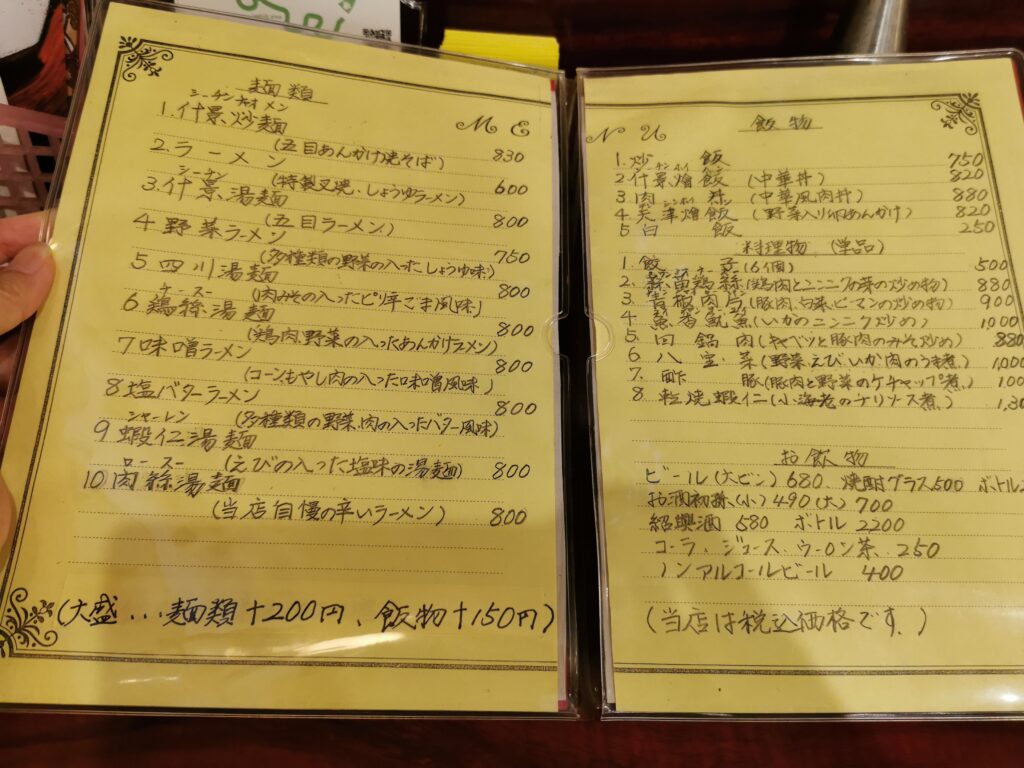 麺類
シーチンチャオメン
1.什景炒麺
(五目あんかけ焼そば) 830
2.ラーメン
(特製叉焼、しょうゆラーメン) 600
3.什景湯麺
(五目ラーメン) 800
4 野菜ラーメン
(多種類の野菜の入ったしょうゆ味) 750
5 四川湯麺
(肉みその入ったピリ辛ごま風味) 800
6 鶏絲湯麺
(鶏肉、野菜の入ったあんかけラーメン) 800
7 味噌ラーメン
(コーンもやし肉の入った味噌風味) 800
8 塩バターラーメン
(多種類の野菜、肉の入ったバター風味) 800
シャーレン
9 蝦仁湯麺
(えびの入った塩味の湯麺) 800
ロースー
10 肉絲湯麺
(当店自慢の辛いラーメン) 800
(大盛...麺類+200円、飯物+150円)
ME
NU
飯物
1.炒飯 750
2 什景燴飯 (中華丼) 820
3 肉 (中華風肉丼) 880
4 天津燴飯 (野菜入り卵あんかけ) 820
5 白飯 250
料理物 (単品)
1.餃子(6個) 500
2 鶏絲(鶏肉とニンニクの芽の炒め物) 880
3 青椒肉片(豚肉、白菜、ピーマンの炒め物) 900
4 魚香魷魚(いかのニンニク炒め) 1000
5 回鍋肉(キャベツと豚肉のみそ炒め) 880
6 八宝菜(野菜、えび、いか、肉のうま煮) 1,000
7. 酢豚(豚肉と野菜のケチャップ煮) 100
8 乾焼蝦仁(小海老のチリソース煮) 1,30
お飲物
ビール(大ビン)680、焼酎グラス500 ボトル
お酒初孫(小)490(大)700
紹興酒 580 ボトル 2200
コーラ、ジュース、ウーロン茶、250
ノンアルコールビール 400
(当店は税込価格です。)